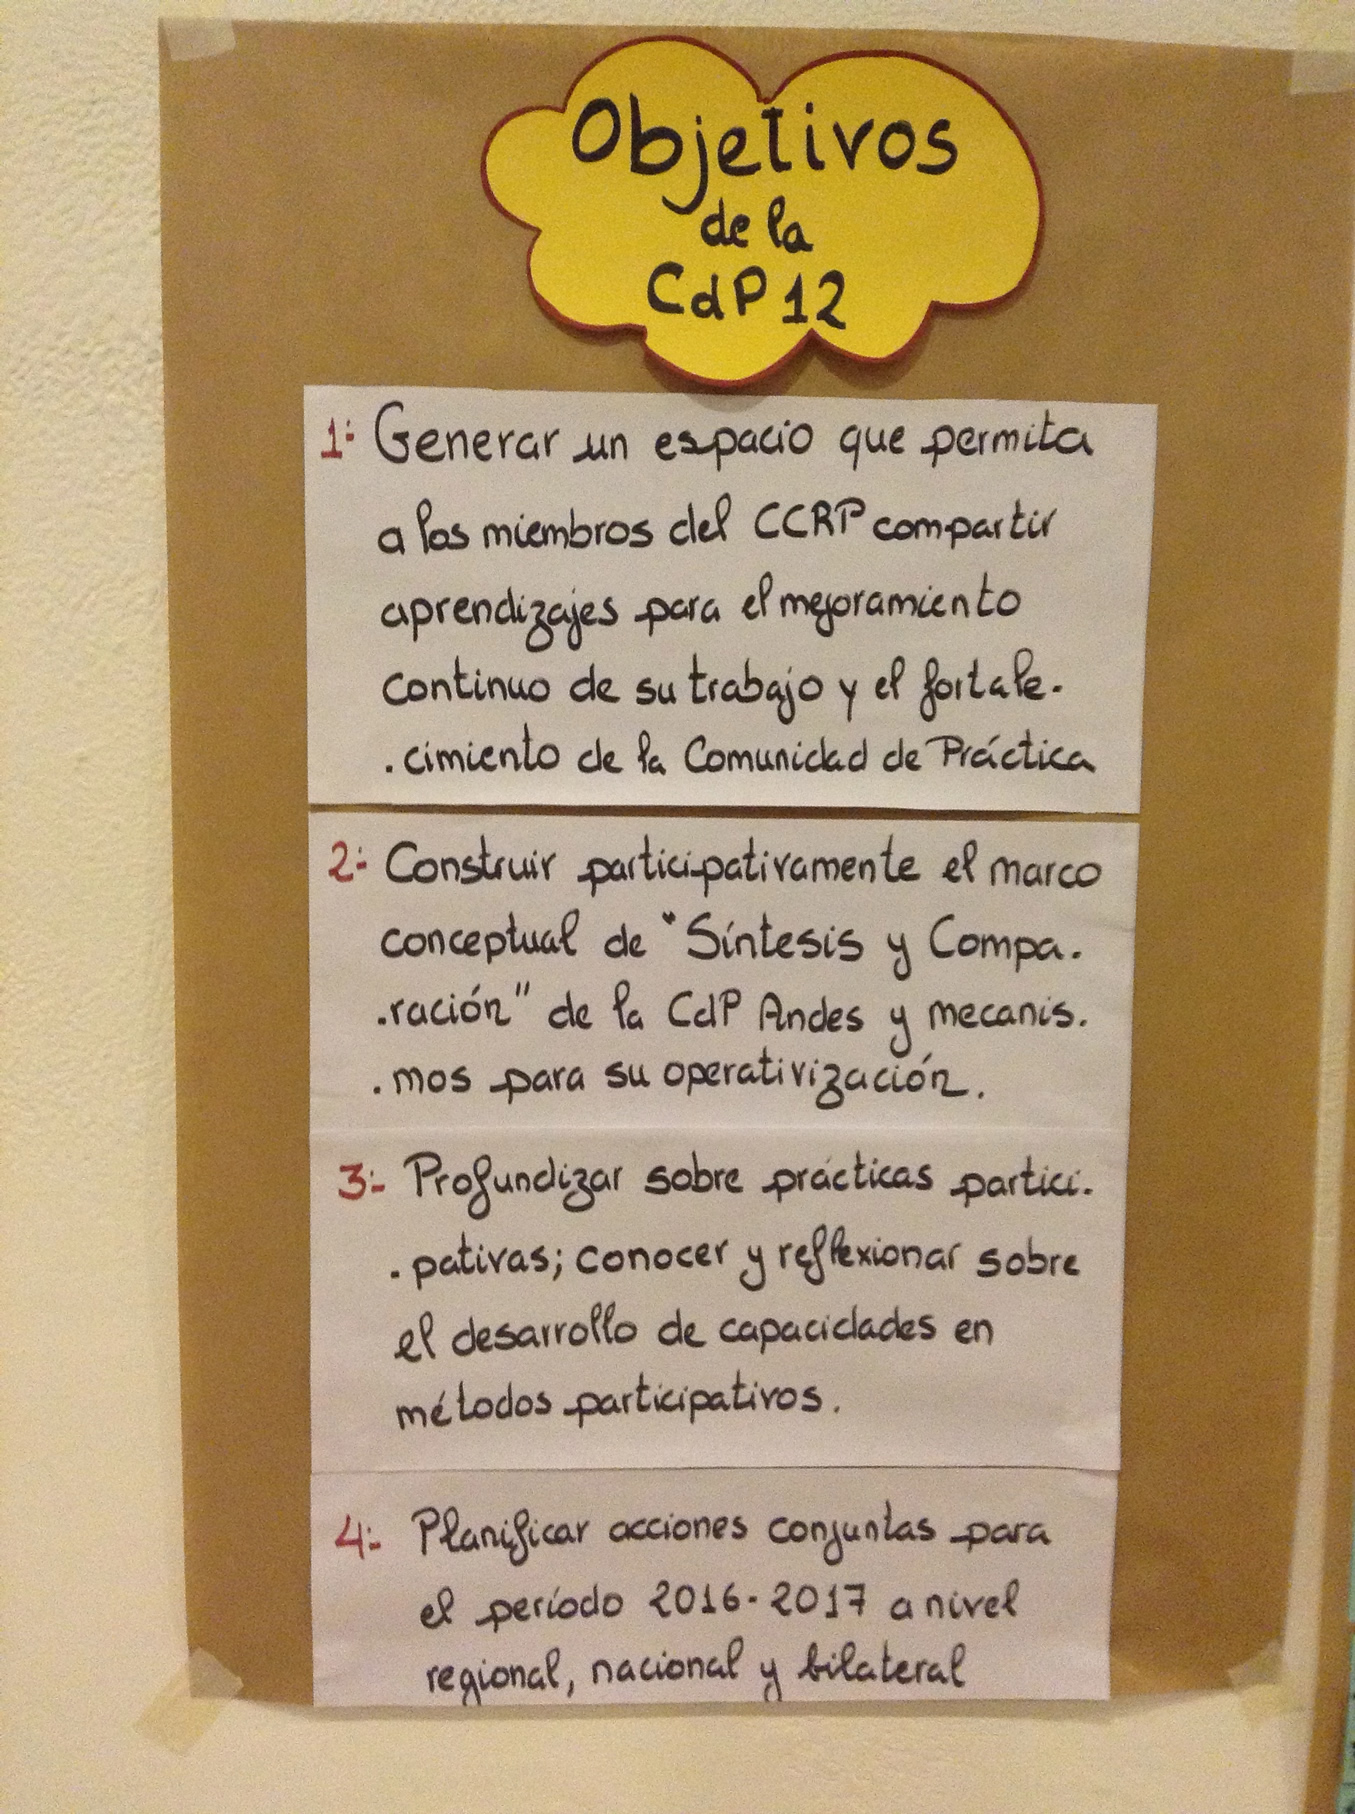 Objetivos
de la
CdP 12
1:- Generar un espacio que permita
a los miembros del CCRP compartir
aprendizajes para el mejoramiento
continuo de su trabajo y el fortale-
-cimiento de la Comunidad de Práctica
2:- Construir participativamente el marco
conceptual de "Síntesis y Compa-
-ración" de la CdP Andes y mecanis-
-mos para su operativización.
3:- Profundizar sobre prácticas partici-
-pativas; conocer y reflexionar sobre
el desarrollo de capacidades en
métodos participativos.
4:- Planificar acciones conjuntas para
el período 2016-2017 a nivel
regional, nacional y bilateral